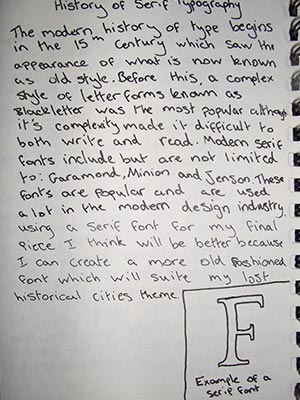 History of Serif Typography
The modern history of type begins
in the 15th Century which saw the
appearance of what is now known
as old style. Before this, a complex
style of letter forms known as
Blackletter was the most popular although
it's complexity made it difficult to
both write and read. Modern serif
fonts include but are not limited
to: Garamond, Minion and Jenson. These
fonts are popular and are used
a lot in the modern design industry.
using a serif font for my final
piece I think will be better because
I can create a more old fashioned
font which will suite my lost
historical cities theme.
F
Example of a
serif font